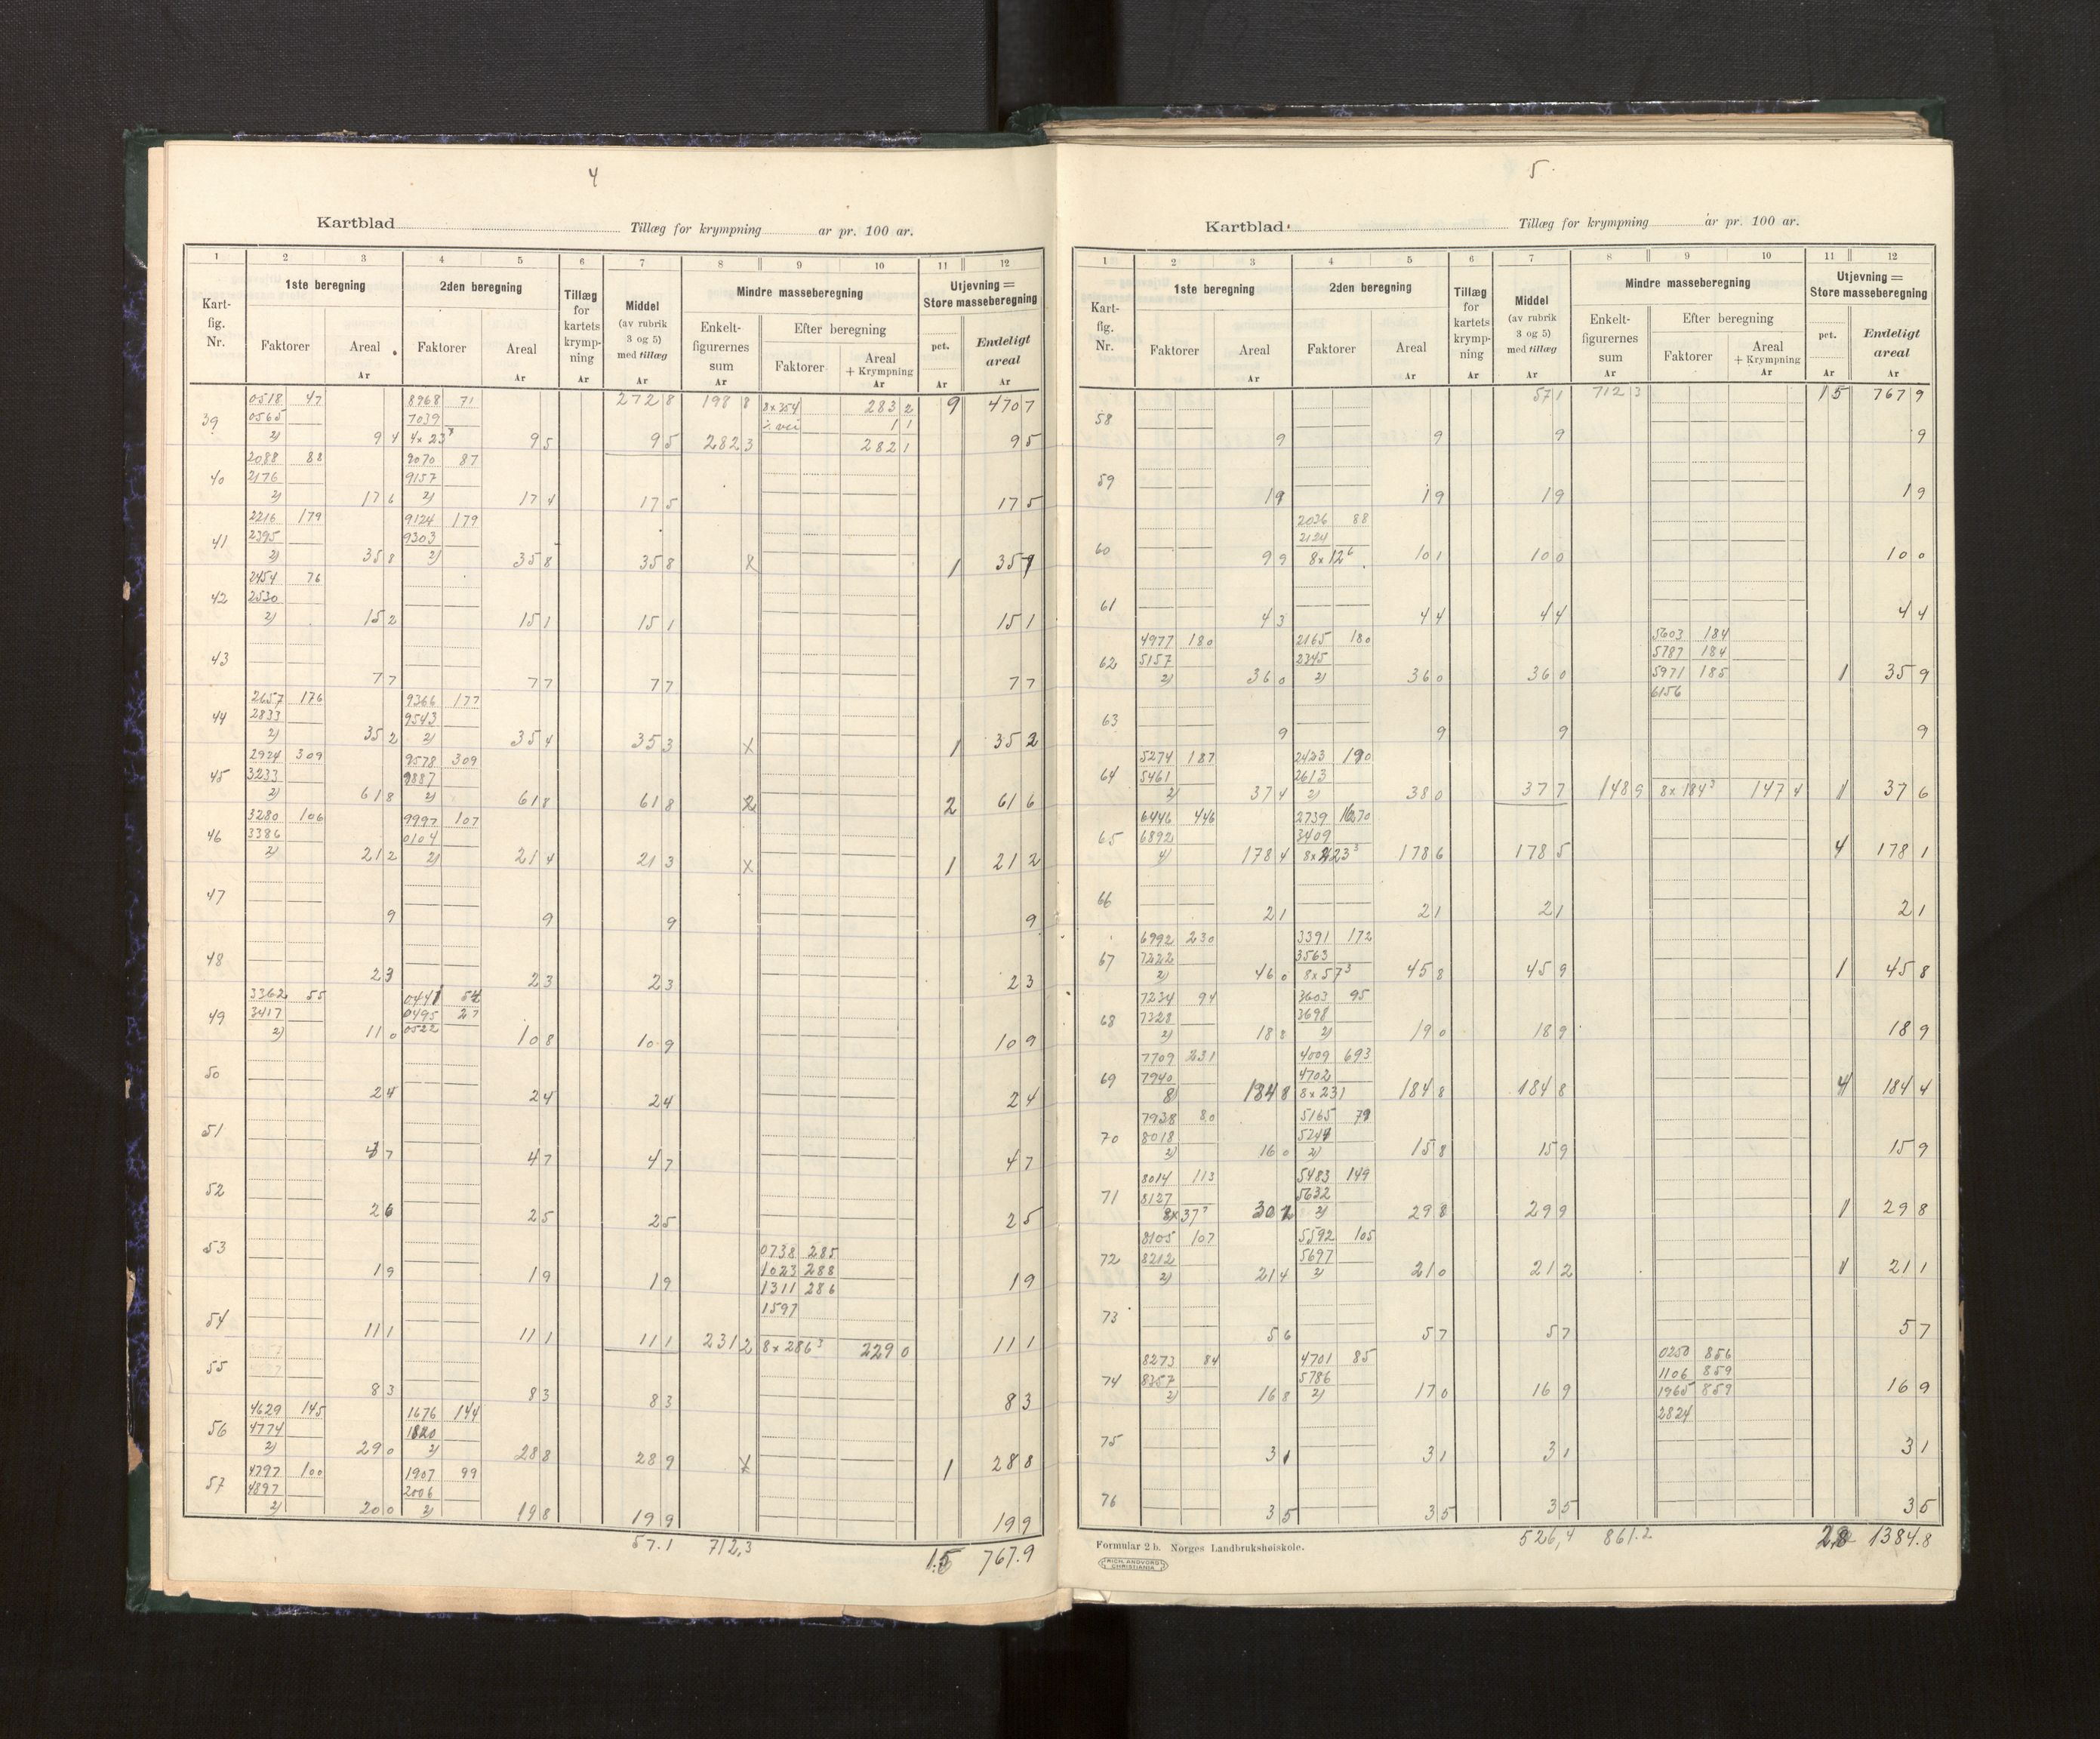 4
Kartblad Tillæg for krympning ar pr. 100 ar.
1 2 3 4 5 6 7 8 9 10 11 12
Kart-fig. Nr. 1ste beregning 2den beregning Tillæg for kartets krympning Middel (av rubrik 3 og 5) med tillæg Mindre masseberegning Utjevning = Store masseberegning
Faktorer Areal Faktorer Areal Enkelt-figurernes sum Efter beregning pct. Endeligt areal
Faktorer Areal + Krympning
Ar Ar Ar Ar Ar Ar Ar Ar
0518 47 8968 71 272 8 198 8 8x354 283 2 9 470 7
0565 7039 1 1
39 2) 9 4 4x 23³ 9 5 9 5 282 3 282 1 9 5
2088 88 9070 87
40 2176 9157
2) 17 6 2) 17 4 17 5 17 5
2216 179 9124 179
41 2395 9303
2) 35 8 2) 35 8 35 8 x 1 35 7
2454 76
42 2530
2) 15 2 15 1 15 1 15 1
43
7 7 7 7 7 7 7 7
2657 176 9366 177
44 2833 9543
2) 35 2 2) 35 4 35 3 x 1 35 2
2924 309 9578 309
45 3233 9887
2) 61 8 2) 61 8 61 8 x 2 61 6
3280 106 9997 107
46 3386 0104
2) 21 2 2) 21 4 21 3 x 1 21 2
47
9 9 9 9
48
2 3 2 3 2 3 2 3
3362 55 0441 54
49 3417 0495 27
2) 11 0 0522 10 8 10 9 10 9
50
2 4 2 4 2 4 2 4
51
4 7 4 7 4 7 4 7
52
2 6 2 5 2 5 2 5
53 0738 285
1023 288
1 9 1 9 1 9 1311 286 1 9
1597
54
11 1 11 1 11 1 231 2 8x286³ 229 0 11 1
55
8 3 8 3 8 3 8 3
4629 145 1676 144
56 4774 1820
2) 29 0 2) 28 8 28 9 x 1 28 8
4797 100 1907 99
57 4897 2006
2) 20 0 2) 19 8 19 9 19 9
57.1 712,3 1.5 767.9
5
Kartblad Tillæg for krympning ar pr. 100 ar.
1 2 3 4 5 6 7 8 9 10 11 12
Kart-fig. Nr. 1ste beregning 2den beregning Tillæg for kartets krympning Middel (av rubrik 3 og 5) med tillæg Mindre masseberegning Utjevning = Store masseberegning
Faktorer Areal Faktorer Areal Enkelt-figurernes sum Efter beregning pct. Endeligt areal
Faktorer Areal + Krympning
Ar Ar Ar Ar Ar Ar Ar Ar
57 1 712 3 1 5 767 9
58
9 9 9 9
59
1 9 1 9 1 9 1 9
2036 88
60 2124
9 9 8x12⁶ 10 1 10 0 10 0
61
4 3 4 4 4 4 4 4
4977 180 2165 180 5603 184
62 5157 2345 5787 184
2) 36 0 2) 36 0 36 0 5971 185 1 35 9
6156
63
9 9 9 9
5274 187 2423 190
64 5461 2613
2) 37 4 2) 38 0 37 7 148 9 8x184³ 147 4 1 37 6
6446 446 2739 670
65 6892 3409
4) 178 4 8x223³ 178 6 178 5 4 178 1
66
2 1 2 1 2 1 2 1
6992 230 3391 172
67 7222 3563
2) 46 0 8x57³ 45 8 45 9 1 45 8
7234 94 3603 95
68 7328 3698
2) 18 8 2) 19 0 18 9 18 9
7709 231 4009 693
69 7940 4702
8) 184 8 8x231 184 8 184 8 4 184 4
7938 80 5165 79
70 8018 5244
2) 16 0 2) 15 8 15 9 15 9
8014 113 5483 149
71 8127 5632
8x37⁷ 30 2 2) 29 8 29 9 1 29 8
8105 107 5592 105
72 8212 5697
2) 21 4 2) 21 0 21 2 1 21 1
73
5 6 5 7 5 7 5 7
8273 84 4701 85 0250 856
74 8357 5786 1106 859
2) 16 8 2) 17 0 16 9 1965 859 16 9
2824
75
3 1 3 1 3 1 3 1
76
3 5 3 5 3 5 3 5
526,4 861.2 2,8 1384.8
Formular 2 b. Norges Landbrukshøiskole.
RICH. ANDVORD CHRISTIANIA